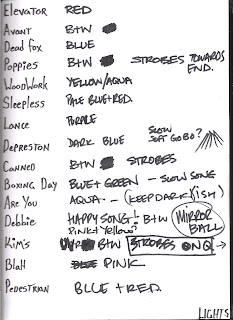 ELEVATOR RED
AVANT B+W
DEAD FOX BLUE
POPPIES B+W STROBES TOWARDS END.
WOODWORK YELLOW/AQUA
SLEEPLESS PALE BLUE+RED.
LANCE PURPLE
DEPRESTON DARK BLUE SLOW SOFT GOBO?
CANNED B+W STROBES
BOXING DAY BLUE+GREEN - SLOW SONG
ARE YOU AQUA - (KEEP DARK(ISH)
DEBBIE HAPPY SONG! B+W MIRROR BALL
PINK+YELLOW?
KIM'S B+W STROBES ON Q →
BLAH PINK
PEDESTRIAN BLUE + RED.
LIGHTS